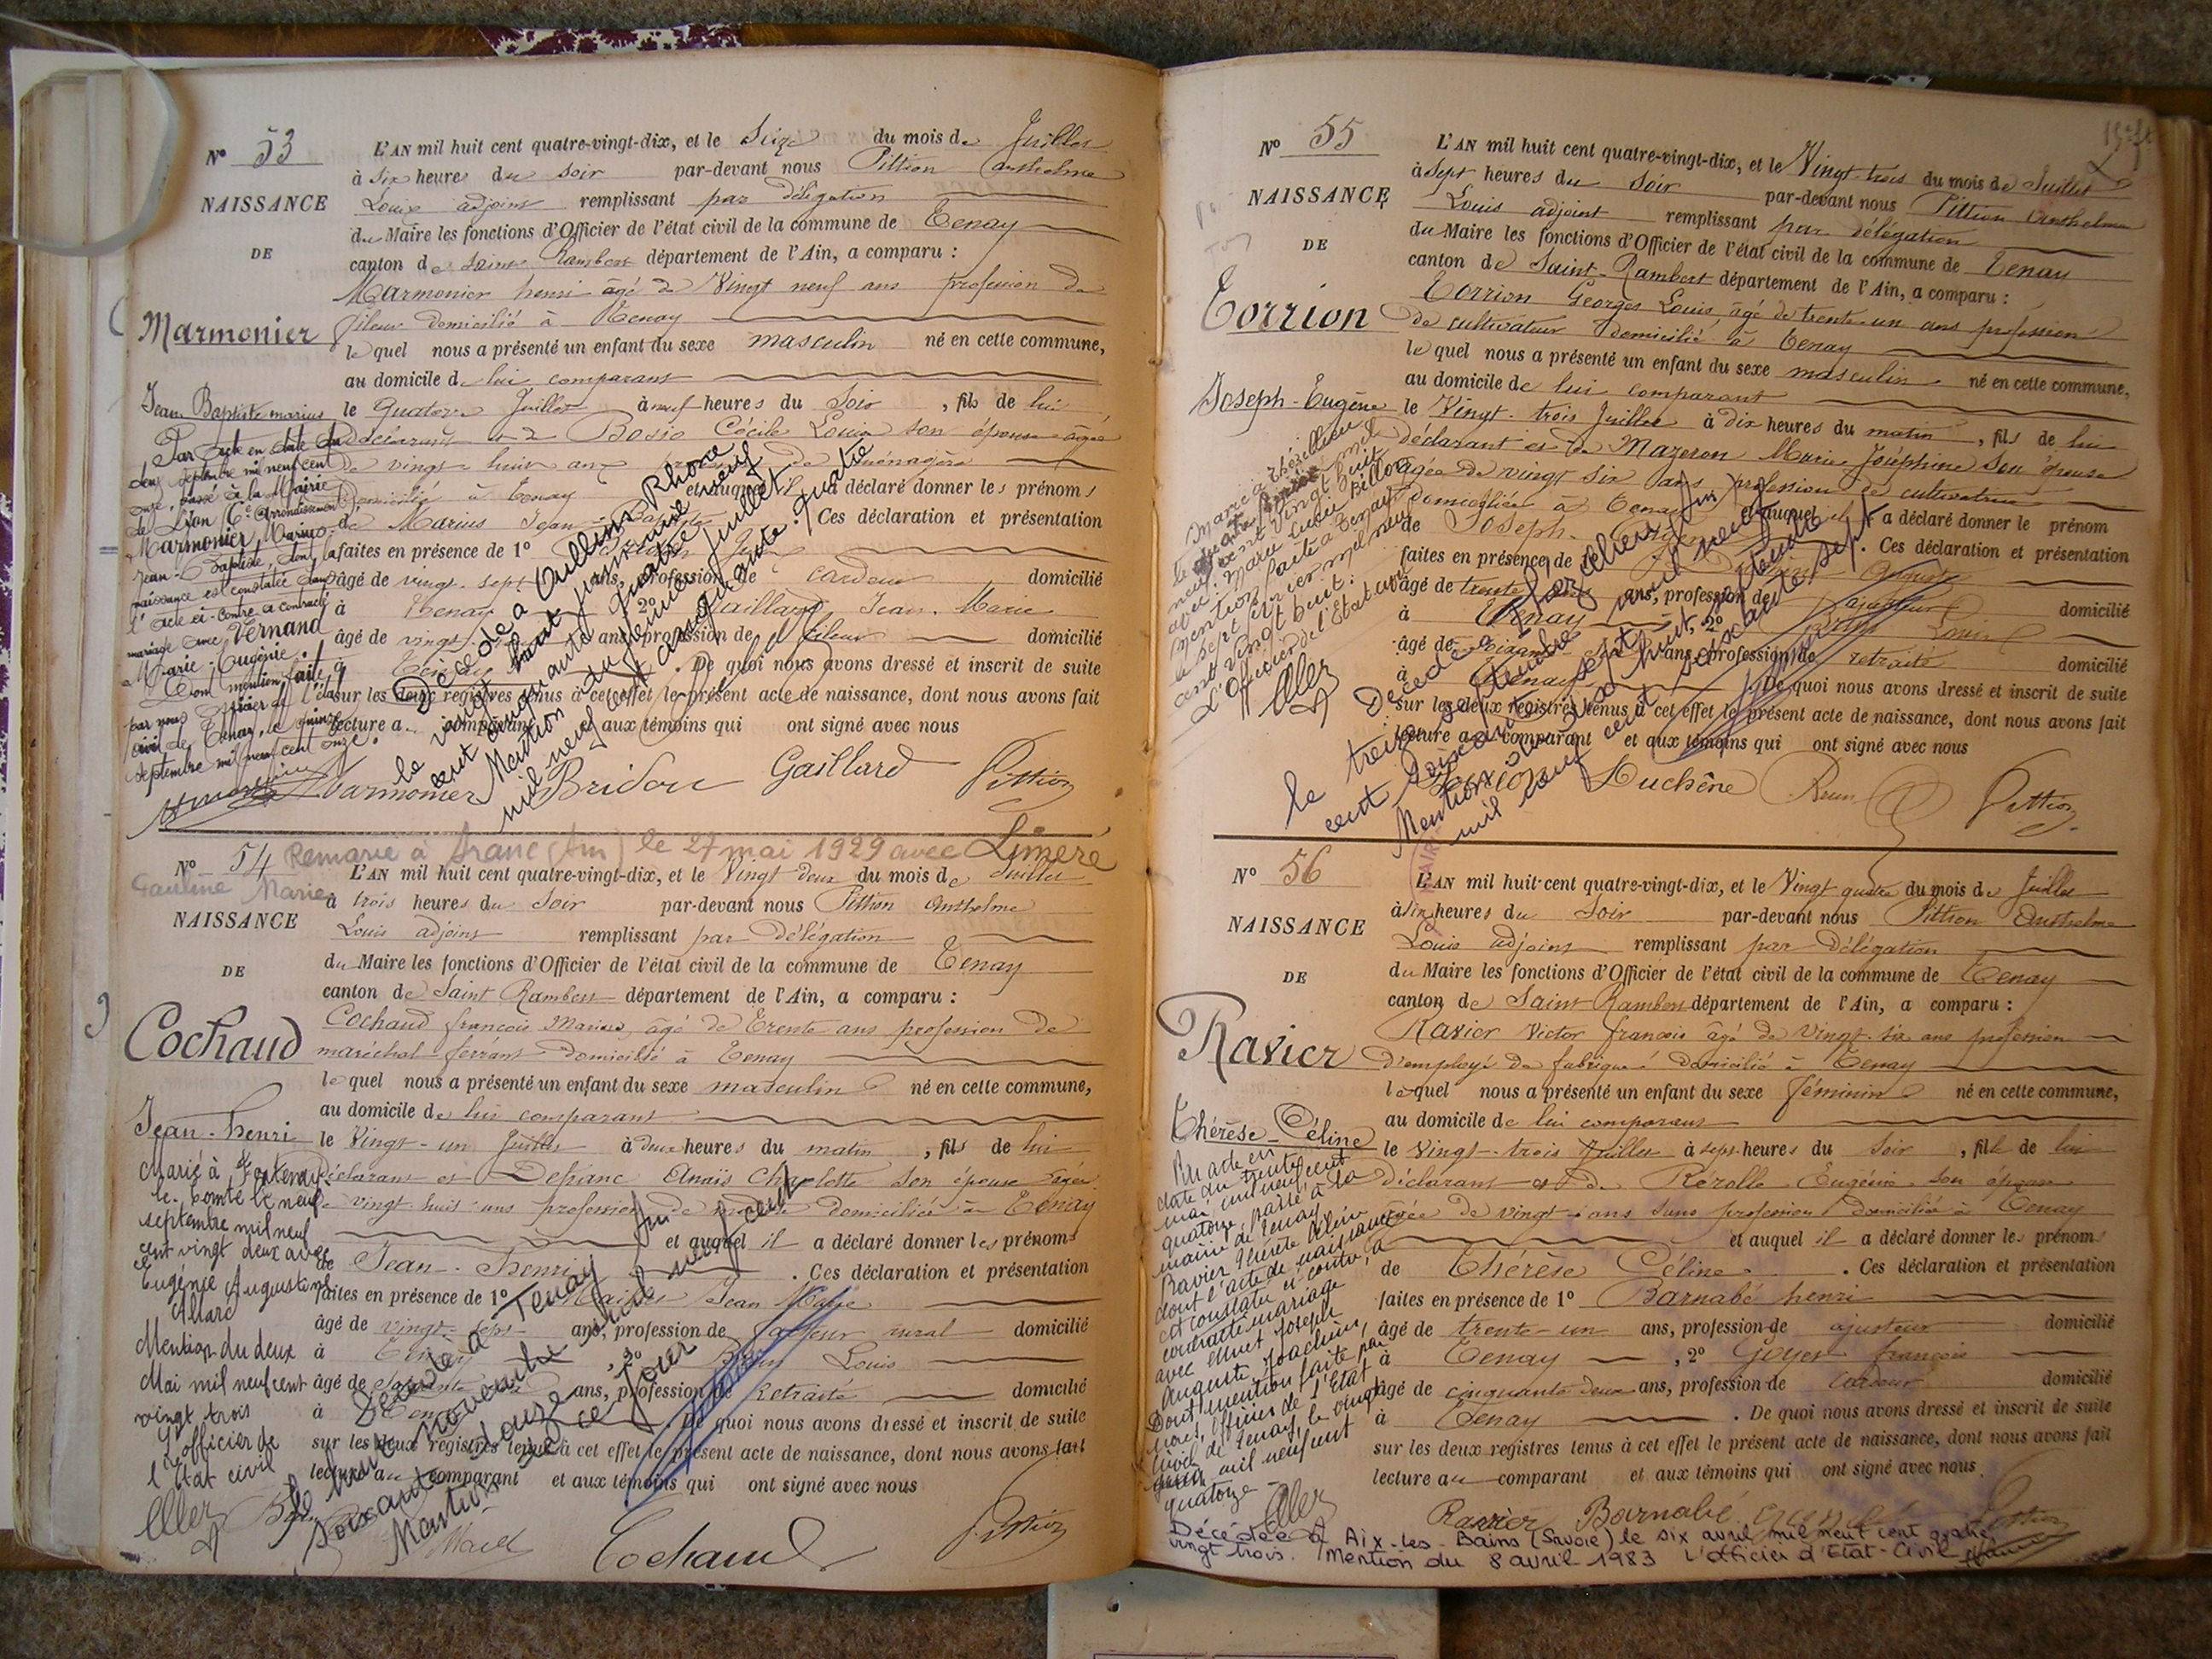 N° 53
L'AN mil huit cent quatre-vingt-dix, et le Seize du mois de Juillet
à six heures du soir par-devant nous Pittion Anthelme
NAISSANCE
Louis adjoint remplissant par délégation
du Maire les fonctions d'Officier de l'état civil de la commune de Tenay
DE
canton de Saint Rambert département de l'Ain, a comparu :
Marmonier henri agé de Vingt neuf ans profession de
Marmonier
fileur domicilié à Tenay
lequel nous a présenté un enfant du sexe masculin né en cette commune,
au domicile de lui comparant
Jean Baptiste marius
le Quatorze Juillet à neuf heures du Soir, fils de lui
déclarant et de Bosio Cécile Louise son épouse âgée
de vingt huit ans de ménagère
domicilié à Tenay et auquel il a déclaré donner les prénoms
de Marius Jean-Baptiste. Ces déclaration et présentation
faites en présence de 1°
âgé de vingt-sept ans, profession de cardeur domicilié
à Tenay, 2° Gaillard Jean-Marie
âgé de vingt ans, profession de fileur domicilié
à Tenay. De quoi nous avons dressé et inscrit de suite
sur les deux registres tenus à cet effet le présent acte de naissance, dont nous avons fait
lecture au comparant et aux témoins qui ont signé avec nous
Marmonier Bridon Gaillard Pittion
Par acte en date du
deux septembre mil neuf cent
onze, passé à la Mairie
de Lyon (6e arrondissement),
Marmonier, Marius
Jean-Baptiste, dont la
naissance est constatée dans
l'acte ci-contre a contracté
mariage avec VERNAND
Marie-Eugénie.
Dont mention faite
par nous officier de l'état
civil de Tenay, le quinze
septembre mil neuf cent onze.
Décédé à Oullins Rhône
le vingt huit juin mil neuf
cent cinquante quatre
Mention du premier Juillet
mil neuf cent cinquante quatre
Remarié à Franc (Ain) le 27 mai 1929 avec Limeré
Pauline Marie
N° 54
L'AN mil huit cent quatre-vingt-dix, et le Vingt deux du mois de Juillet
à trois heures du Soir par-devant nous Pittion Anthelme
NAISSANCE
Louis adjoint remplissant par délégation
du Maire les fonctions d'Officier de l'état civil de la commune de Tenay
DE
canton de Saint Rambert département de l'Ain, a comparu :
Cochaud françois Marius, âgé de Trente ans profession de
Cochaud
maréchal-ferrant domicilié à Tenay
lequel nous a présenté un enfant du sexe masculin né en cette commune,
au domicile de lui comparant
Jean-henri
le Vingt-un Juillet à deux heures du matin, fils de lui
déclarant et Defranc Anaïs Charlotte son épouse âgée
de vingt huit ans profession de domiciliée à Tenay
et auquel il a déclaré donner les prénoms
de Jean-henri. Ces déclaration et présentation
faites en présence de 1° Jean Marie
âgé de vingt-sept ans, profession de facteur rural domicilié
à Tenay, 2° Louis
âgé de ans, profession de Retraité domicilié
à Tenay. De quoi nous avons dressé et inscrit de suite
sur les deux registres tenus à cet effet le présent acte de naissance, dont nous avons fait
lecture au comparant et aux témoins qui ont signé avec nous
Cochaud Pittion
Marié à Fontenay
le Comte le neuf
septembre mil neuf
cent vingt deux avec
Eugénie Augustine
Allard
Mention du deux
Mai mil neuf cent
vingt trois
L'officier de
l'Etat civil
Décédé à Tenay Ain
le trente novembre mil neuf cent
soixante douze
Mention de ce jour
N° 55
L'AN mil huit cent quatre-vingt-dix, et le Vingt-trois du mois de Juillet
à sept heures du Soir par-devant nous Pittion Anthelme
NAISSANCE
Louis adjoint remplissant par délégation
du Maire les fonctions d'Officier de l'état civil de la commune de Tenay
DE
canton de Saint-Rambert département de l'Ain, a comparu :
Torrion Georges Louis, âgé de trente-un ans profession
Torrion
de cultivateur domicilié à Tenay
lequel nous a présenté un enfant du sexe masculin né en cette commune,
au domicile de lui comparant
Joseph-Eugène
le Vingt-trois Juillet à dix heures du matin, fils de lui
déclarant et de Mazeron Marie Joséphine son épouse
âgée de vingt six ans, profession de cultivatrice
domiciliée à Tenay et auquel il a déclaré donner le prénom
de Joseph-Eugène. Ces déclaration et présentation
faites en présence de 1° Auguste
âgé de trente ans, profession de ajusteur domicilié
à Tenay, 2° Louis
âgé de soixante ans, profession de retraité domicilié
à Tenay. De quoi nous avons dressé et inscrit de suite
sur les deux registres tenus à cet effet le présent acte de naissance, dont nous avons fait
lecture au comparant et aux témoins qui ont signé avec nous
Torrion Duchêne Pittion
neuf cent vingt huit
mention faite à Tenay
le sept février mil neuf
cent vingt huit.
L'Officier de l'Etat civil
Décédé à
le treize septembre mil neuf
cent soixante sept
Mention
mil neuf cent soixante sept
N° 56
L'AN mil huit cent quatre-vingt-dix, et le Vingt quatre du mois de Juillet
à six heures du Soir par-devant nous Pittion Anthelme
NAISSANCE
Louis adjoint remplissant par délégation
du Maire les fonctions d'Officier de l'état civil de la commune de Tenay
DE
canton de Saint-Rambert département de l'Ain, a comparu :
Ravier Victor françois âgé de vingt-six ans profession
Ravier
d'employé de fabrique domicilié à Tenay
lequel nous a présenté un enfant du sexe féminin né en cette commune,
au domicile de lui comparant
Thérèse-Céline
le vingt-trois Juillet à sept heures du Soir, fille de lui
déclarant et de Rérolle Eugénie son épouse
âgée de vingt ans sans profession domicilié à Tenay
et auquel il a déclaré donner les prénoms
de Thérèse Céline. Ces déclaration et présentation
faites en présence de 1° Barnabé henri
âgé de trente-un ans, profession de ajusteur domicilié
à Tenay, 2° Goyet françois
âgé de cinquante deux ans, profession de cardeur domicilié
à Tenay. De quoi nous avons dressé et inscrit de suite
sur les deux registres tenus à cet effet le présent acte de naissance, dont nous avons fait
lecture au comparant et aux témoins qui ont signé avec nous.
Ravier Barnabé
Par acte en
date du trente
mai mil neuf cent
quatorze, passé à la
mairie de Tenay
Ravier Thérèse Céline
dont l'acte de naissance
est constaté ci-contre, a
contracté mariage
avec Joseph
Auguste Joachim,
Dont mention faite par
nous, officier de l'Etat
civil de Tenay, le vingt
juin mil neuf cent
quatorze
Décédée à Aix-les-Bains (Savoie) le six avril mil neuf cent quatre
vingt trois. Mention du 8 avril 1983 L'officier d'Etat-Civil